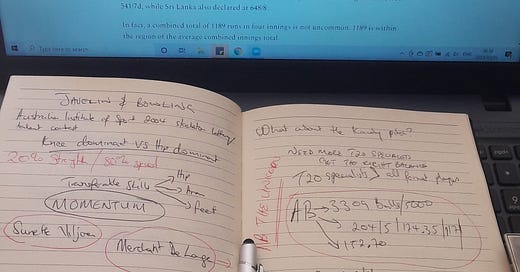 541/7d, while Sri Lanka also declared at 648/8.
In fact, a combined total of 1189 runs in four innings is not uncommon. 1189 is within
the region of the average combined innings total.
Type here to search
JAVELIN & BOWLING
Australian Institute of Sport 2004 skeleton
talent contest
Knee dominant VS Hip dominant
20% Strength / 80% speed
Transferable Skills
Hip
Arm
feet
MOMENTUM
Sunette Viljoen
Merchant De Lange
What about the Kandy pitch?
NEED MORE T20 SPECIALISTS
GET THE RIGHT BALANCE
T20 specialists
all format player
IN THE UNKNOWN
AB → 3309 Balls/5000
152.70